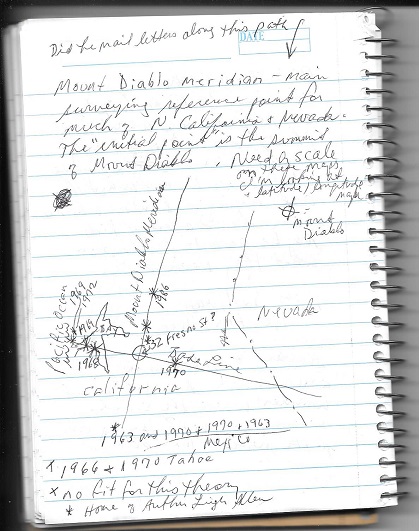 Did he mail letters along this path
DATE
Mount Diablo Meridian - main
surveying reference point for
much of N California & Nevada.
The "initial point" is the summit
of Mount Diablo. Need a scale
on these maps,
I'm looking at
latitude/longitude
maps
= Mount
Diablo
Mount Diablo Meridian
1966
Pacific Ocean
1969
1972
SF
1968
Fresno?
Nevada
State Line
1970
California
* 1963 and 1970 & 1970 & 1963
Mexico
1966 & 1970 Tahoe
x no fit for this theory
* Home of Arthur Leigh Allen